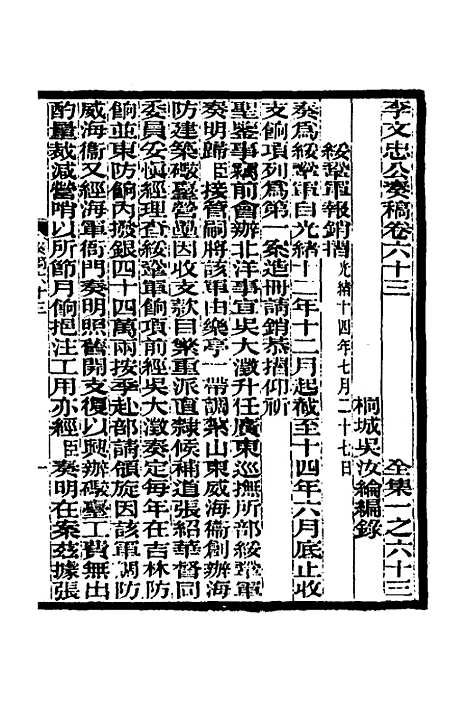 李文忠公奏稿卷六十三　全集一之六十三
桐城吳汝綸編錄
綏鞏軍報銷摺光緒十四年七月二十七日
奏為綏鞏軍自光緒十二年十二月起截至十四年六月底止收
支餉項列為第一案造冊請銷恭摺仰祈
聖鑒事竊前會辦北洋事宜吳大澂升任廣東巡撫所部綏鞏軍
奏明歸臣接管嗣將該軍由樂亭一帶調紮山東威海衞創辦海
防建築礮臺營壘因收支款目棼重派直隸候補道張紹華督同
委員安慎經理查綏鞏軍餉項前經吳大澂奏定每年在吉林防
餉並東防餉內撥銀四十四萬兩按季赴部請領旋因該軍調防
威海衞又經海軍衙門奏明照舊開支復以興辦礮臺工費無出
酌量裁減營哨以所節月餉挹注工用亦經臣奏明在案茲據張
奏稿六十三
一